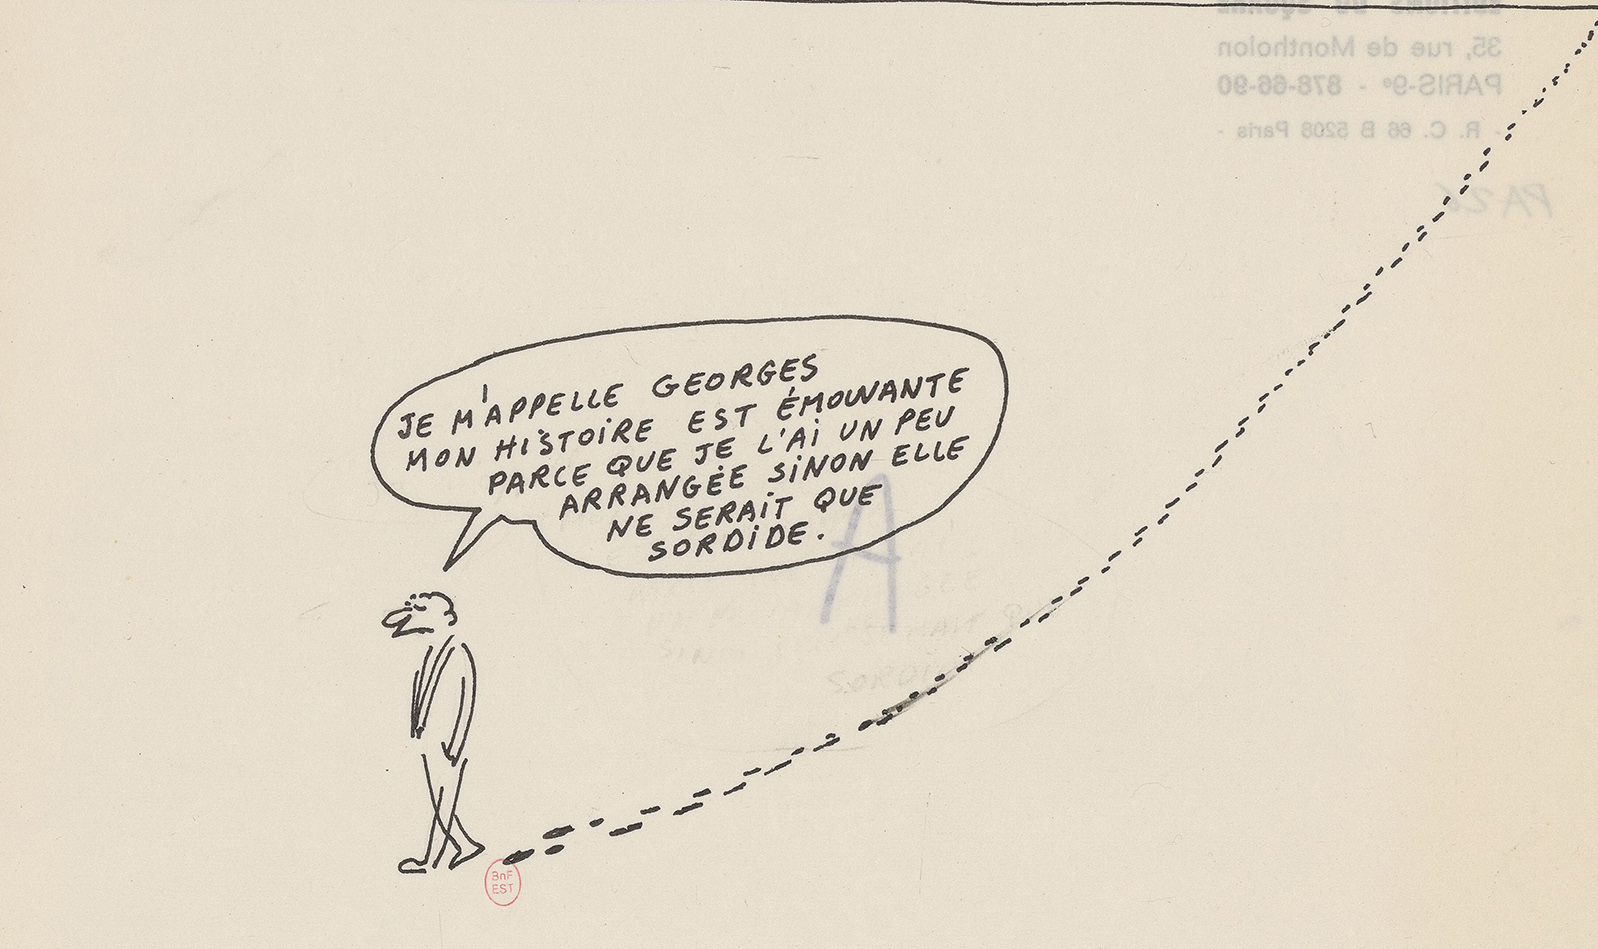 35, rue de Montholon
PARIS-9e - 878-66-90
- R. C. 66 B 5208 Paris -
PA 26
JE M'APPELLE GEORGES
MON HISTOIRE EST ÉMOUVANTE
PARCE QUE JE L'AI UN PEU
ARRANGÉE SINON ELLE
NE SERAIT QUE
SORDIDE.
A
BnF
EST